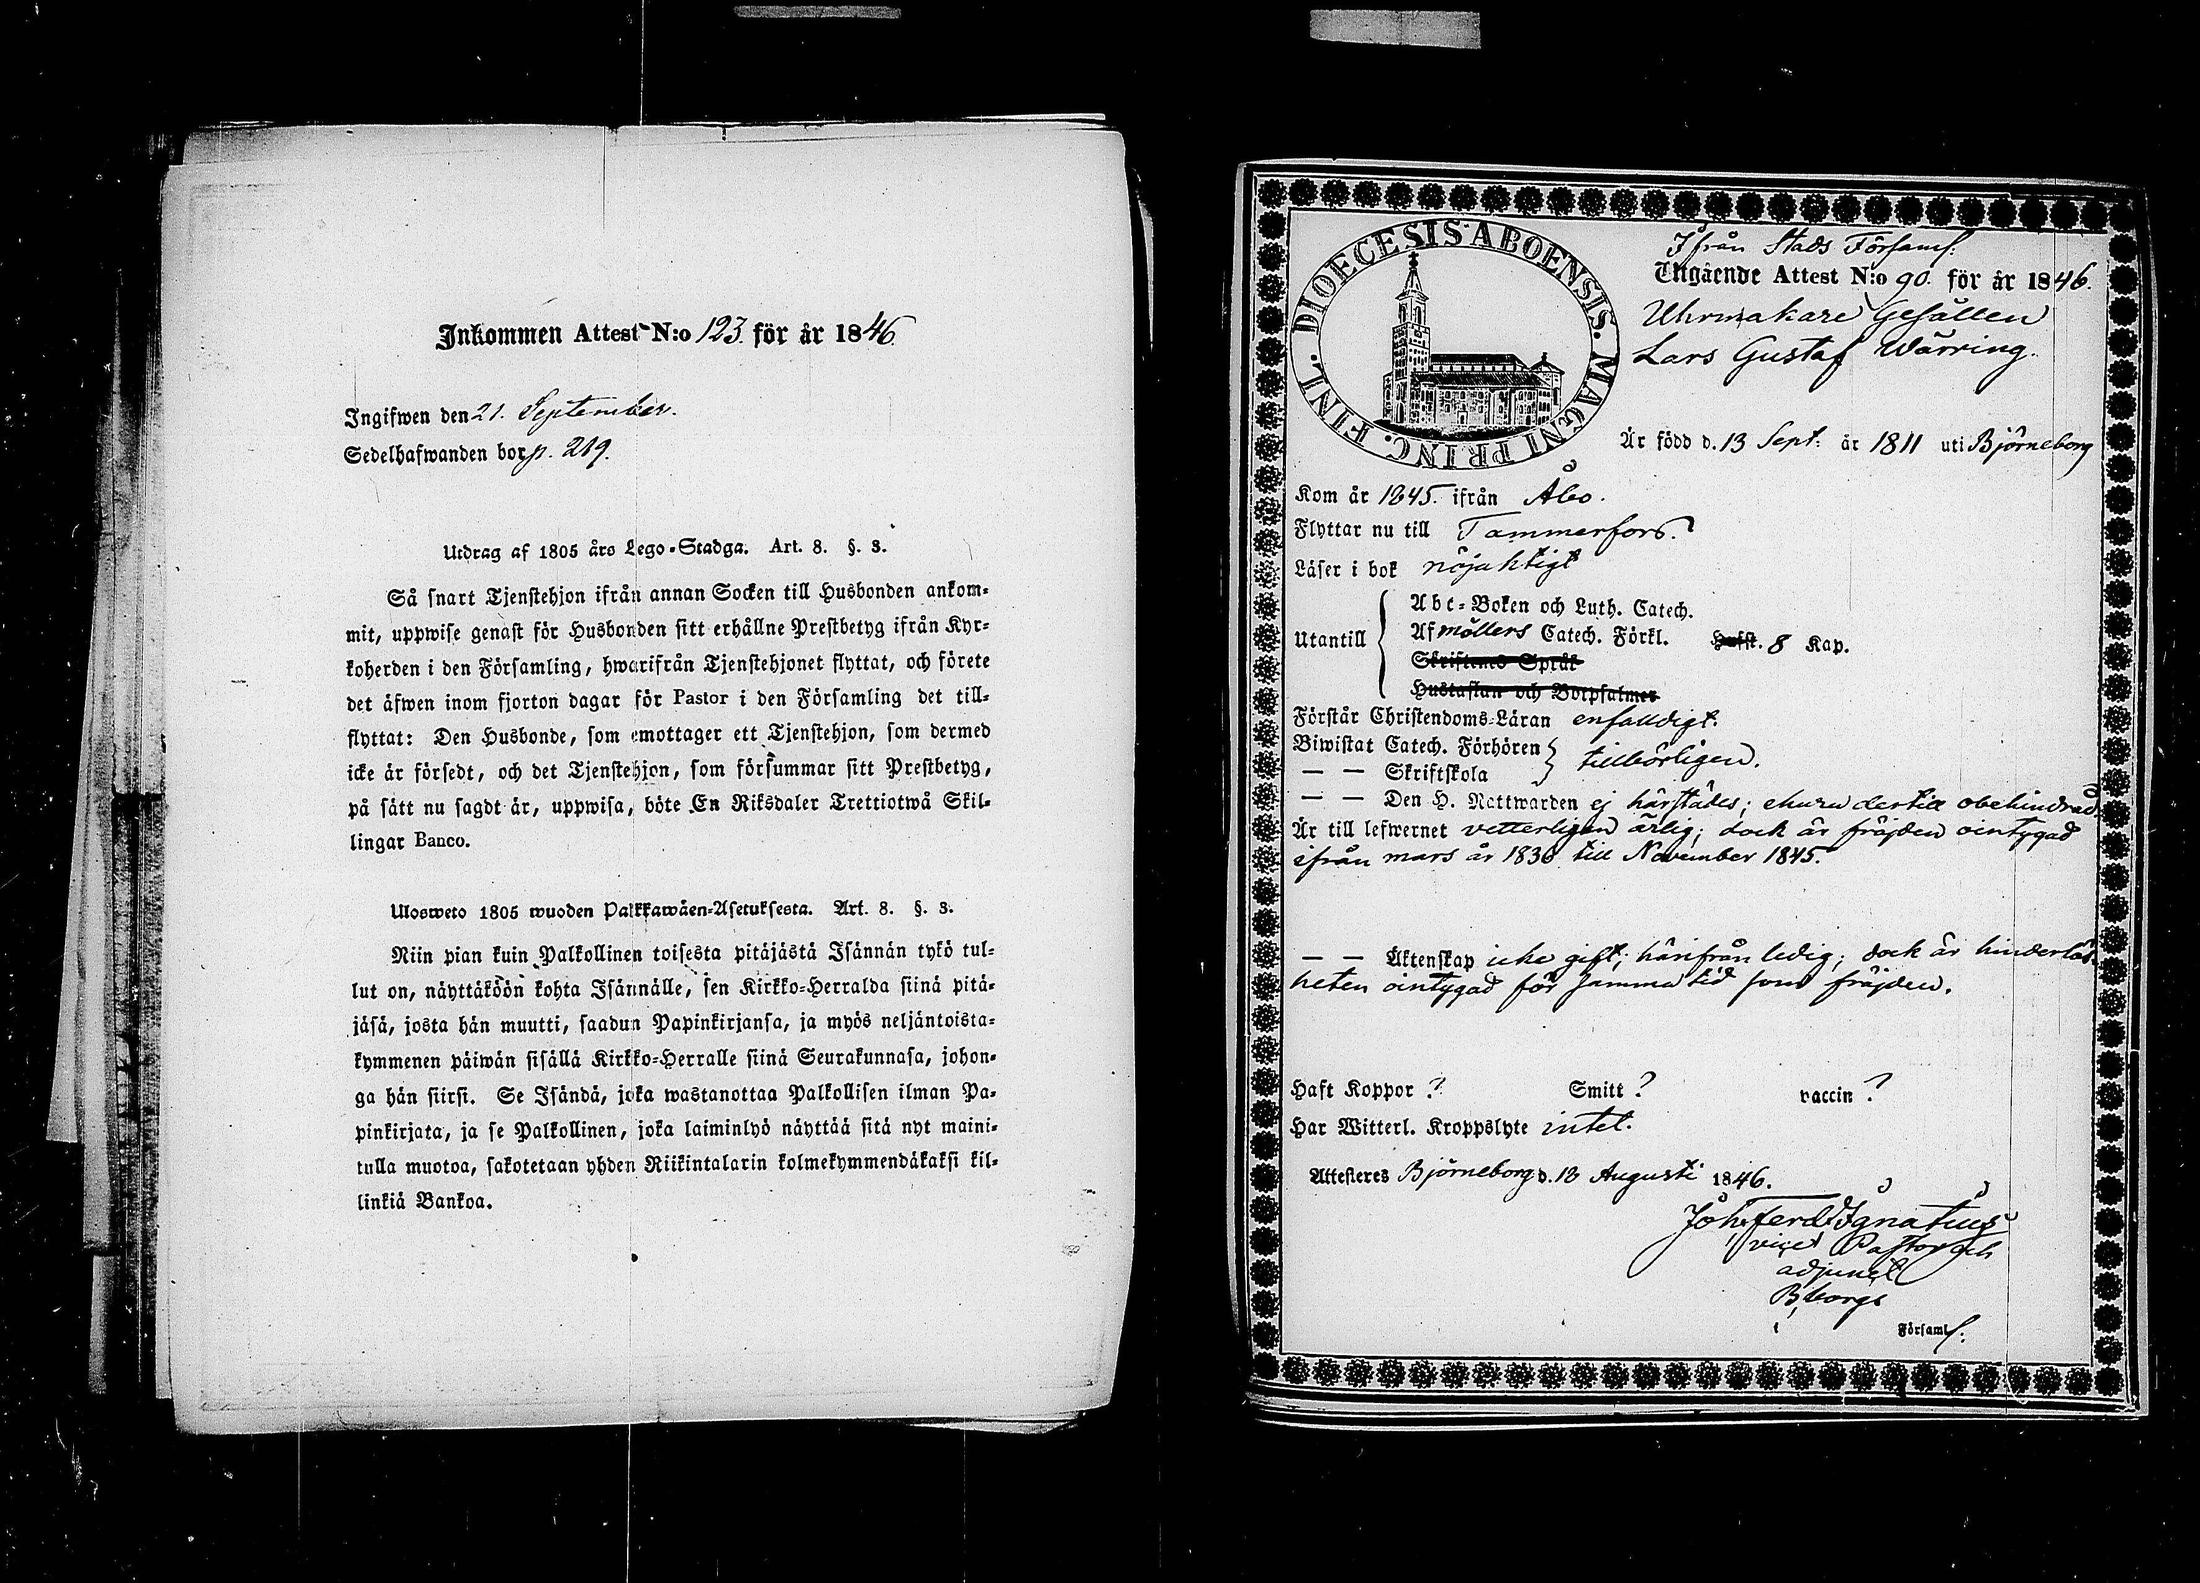 Inkommen Attest N:o 123. för år 1846.
Ingifwen den 21. September.
Sedelhafwanden bor p. 219.
Utdrag af 1805 års Lego-Stadga. Art. 8. §. 3.
Så snart Tjenstehjon ifrån annan Socken till Husbonden ankom-
mit, uppwise genast för Husbonden sitt erhållne Prestbetyg ifrån Kyr-
koherden i den Församling, hwarifrån Tjenstehjonet flyttat, och förete
det äfwen inom fjorton dagar för Pastor i den Församling det till-
flyttat: Den Husbonde, som emottager ett Tjenstehjon, som dermed
icke är försedt, och det Tjenstehjon, som försummar sitt Prestbetyg,
på sätt nu sagdt är, uppwisa, böte En Riksdaler Trettiotwå Skil-
lingar Banco.
Ulosweto 1805 wuoden Palkkawäen-Asetuksesta. Art. 8. §. 3.
Niin pian kuin Palkollinen toisesta pitäjästä Isännän tykö tul-
lut on, näyttäköön kohta Isännälle, sen Kirkko-Herralda siinä pitä-
jäsä, josta hän muutti, saadun Papinkirjansa, ja myös neljäntoista-
kymmenen päiwän sisällä Kirkko-Herralle siinä Seurakunnasa, johon-
ga hän siirsi. Se Isändä, joka wastanottaa Palkollisen ilman Pa-
pinkirjata, ja se Palkollinen, joka laiminlyö näyttää sitä nyt maini-
tulla muotoa, sakotetaan yhden Riikintalarin kolmekymmendäkaksi kil-
linkiä Bankoa.
DIOECESIS ABOENSIS. MAGNI PRINC. FINL.
Ifrån Stads Församl:
Utgående Attest N:o 90. för år 1846.
Uhrmakare Gesällen
Lars Gustaf Wärring.
Är född d. 13 Sept: år 1811 uti Björneborg
Kom år 1845. ifrån Åbo.
Flyttar nu till Tammerfors.
Läser i bok nöjaktigt
Utantill
Abc-Boken och Luth. Catech.
Af möllers Catech. Förkl. Hufst. 8 Kap.
Skriftenes Språk
Hustaflan och Botpsalmer
Förstår Christendoms-Läran enfalldigt.
Biwistat Catech. Förhören } tillbörligen.
— — Skriftskola
— — Den H. Nattwarden ej härstädes; ehuru dertill obehindrad.
Är till lefwernet vetterligen ärlig; dock är fräjden ointygad
ifrån mars år 1836 till November 1845.
— — Äktenskap icke gift; härifrån ledig; dock är hinderlös-
heten ointygad för samma tid som fräjden.
Haft Koppor ? Smitt ? vaccin ?
Har Witterl. Kroppslyte intet.
Attesteres Björneborg d. 18 Augusti 1846.
Joh. Ferd. Ignatius
vice Pastor och
adjunct
B,borgs
Församl: